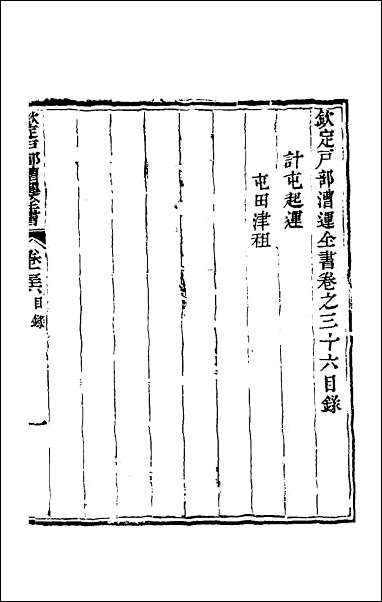 欽定戶部漕運全書卷之三十六目錄
計屯起運
屯田津租
欽定戶部漕運全書
卷三十六 目錄
一